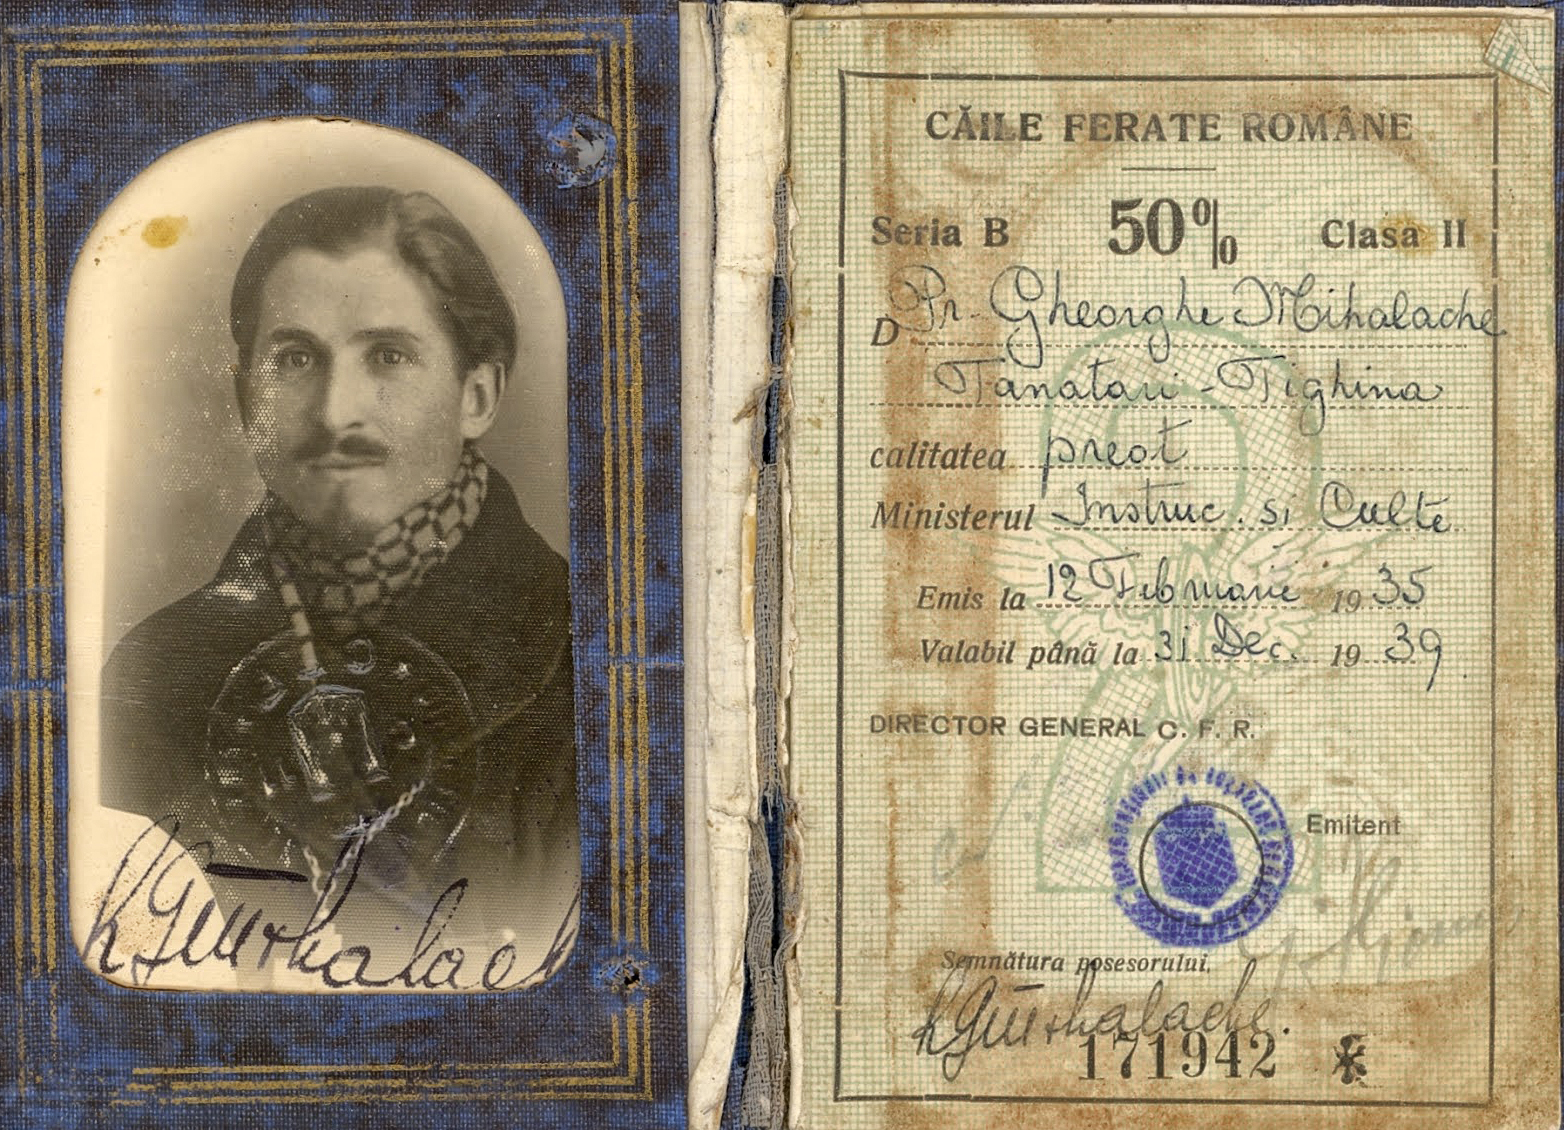 CĂILE FERATE ROMÂNE
Seria B 50% Clasa II
D Pr. Gheorghe Mihalache
Tanatari-Tighina
calitatea preot
Ministerul Instruc. si Culte
Emis la 12 Februarie 1935
Valabil până la 31 Dec. 1939
DIRECTOR GENERAL C. F. R.
Emitent
Semnătura posesorului,
171942